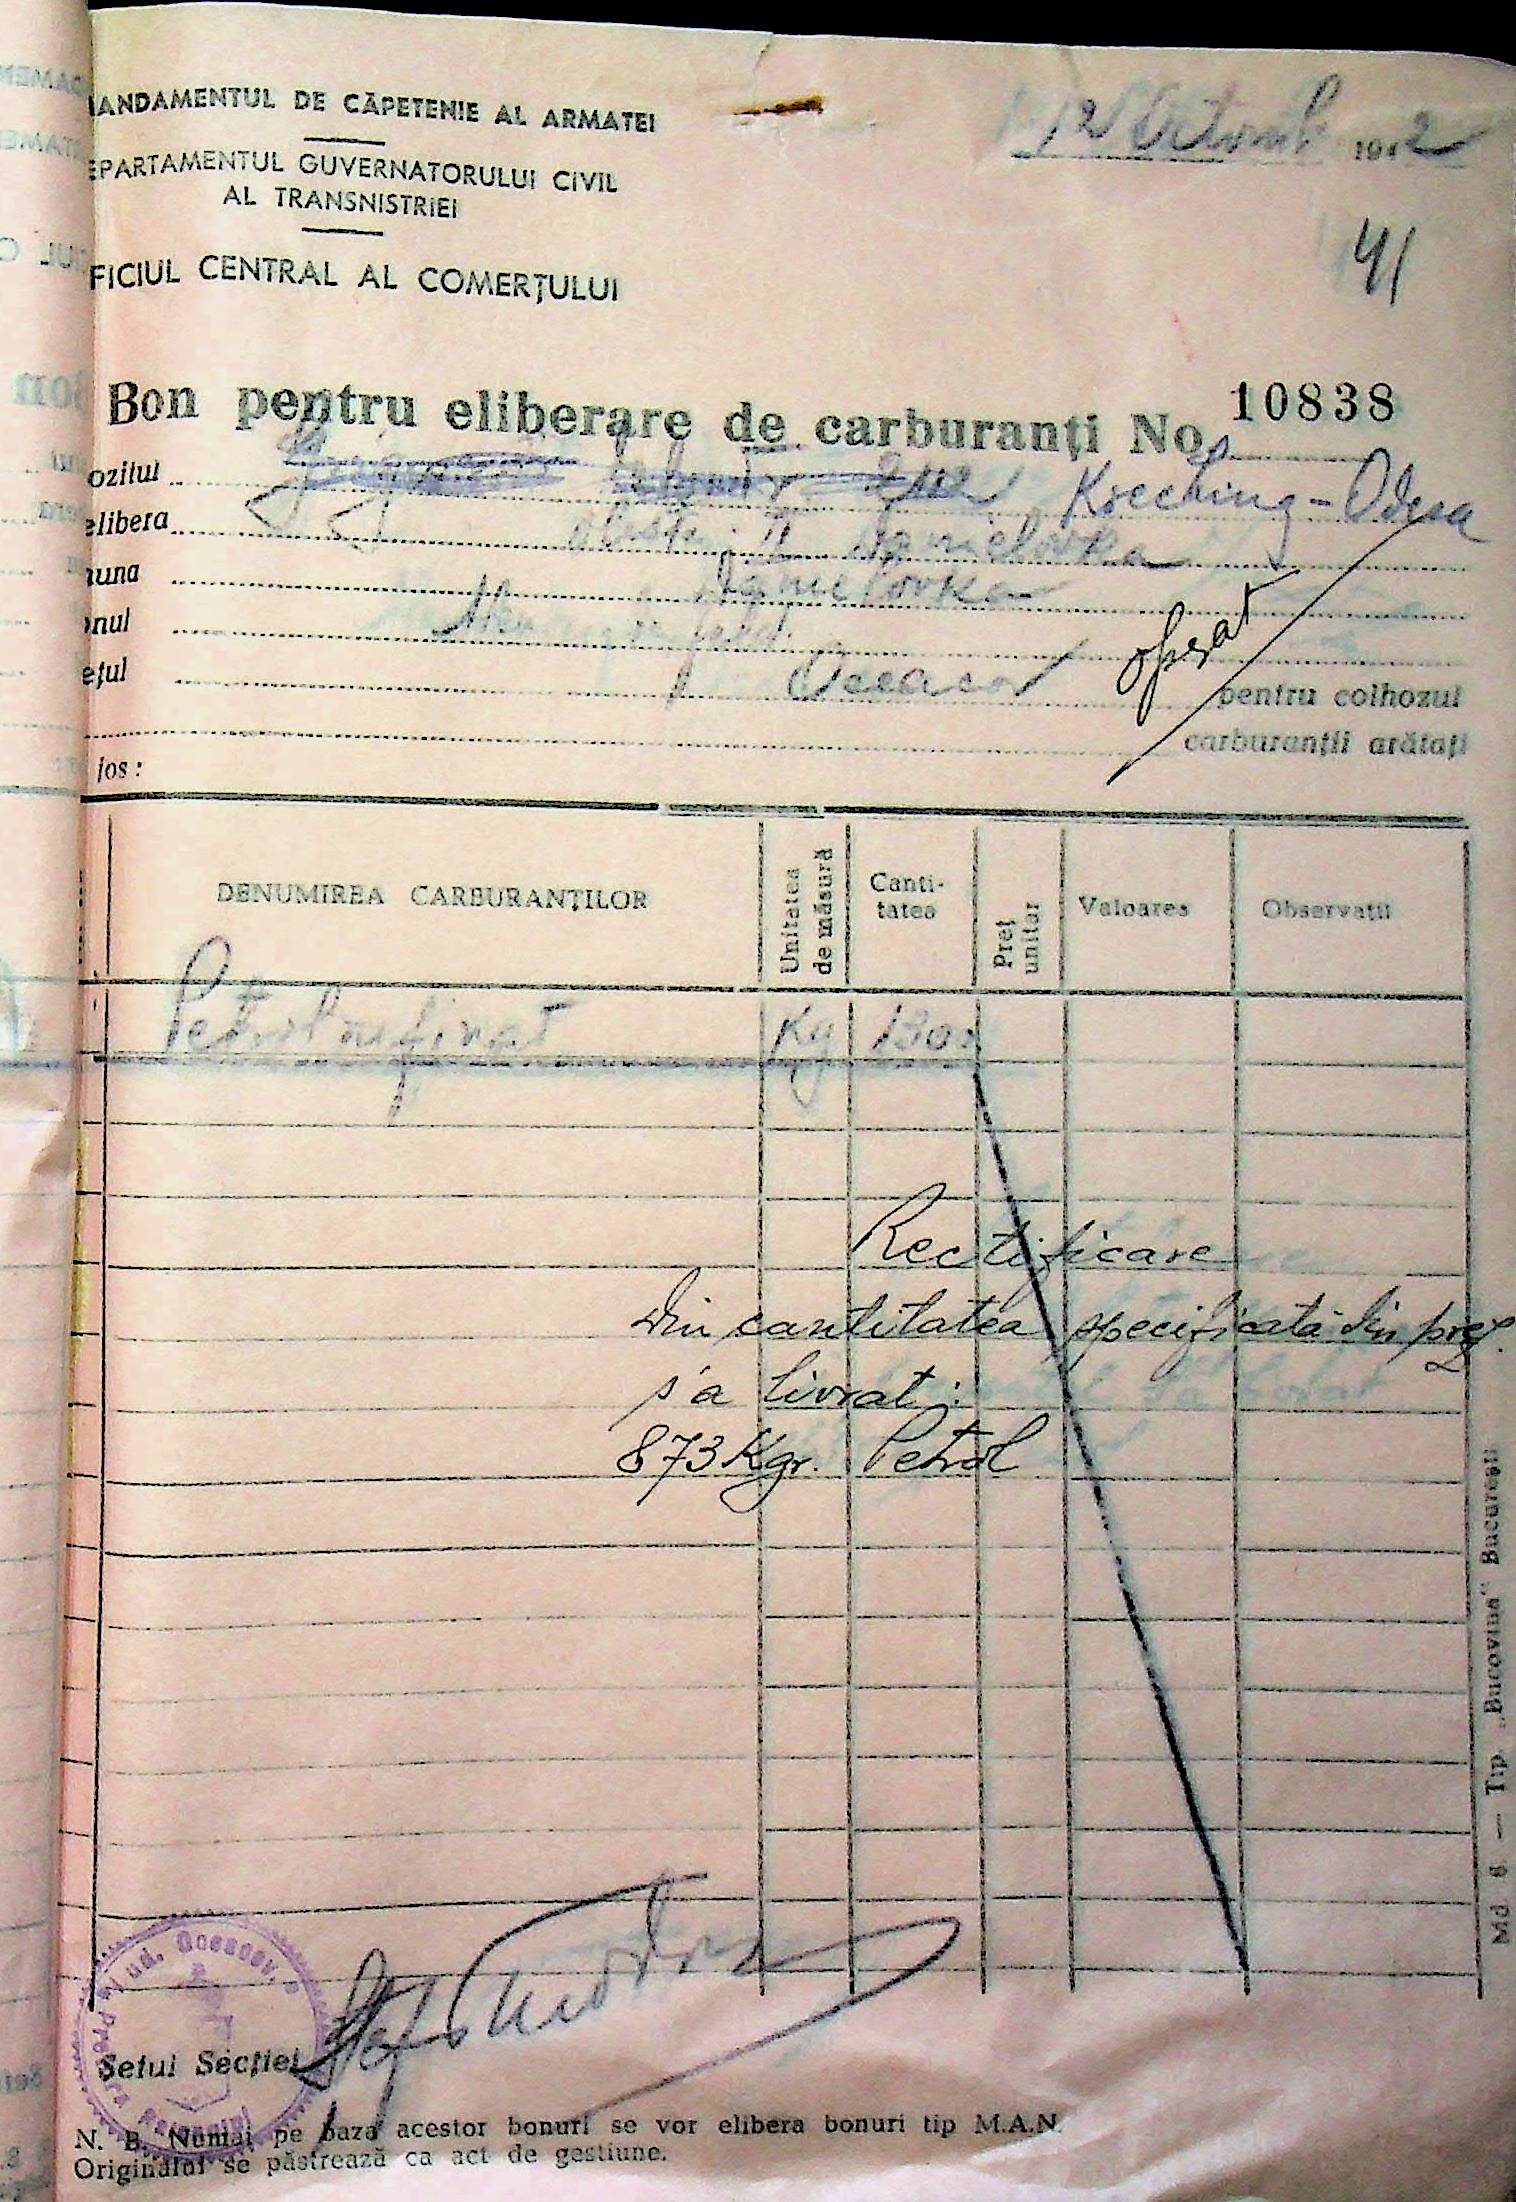 MANDAMENTUL DE CĂPETENIE AL ARMATEI
12 Octomb 1942
EPARTAMENTUL GUVERNATORULUI CIVIL
AL TRANSNISTRIEI
41
FICIUL CENTRAL AL COMERŢULUI
Bon pentru eliberare de carburanţi No. 10838
ozilul Kreching - Odesa
elibera
muna
onul
eţul Oceacov pentru colhozul
carburanţii arătaţi
jos :
DENUMIREA CARBURANŢILOR Unitatea de măsură Canti-tatea Preţ unitar Valoarea Observaţii
Petrol rafinat Kg 1300
Rectificare
din cantitatea specificată din preż.
s'a livrat :
873 Kgr. Petrol
Md 6 — Tip. „Bucovina" Bucureşti
Jud. Oceacov
Pretura Raionului
Şeful Secţiei
N. B. Numai pe baza acestor bonuri se vor elibera bonuri tip M.A.N.
Originalul se păstrează ca act de gestiune.